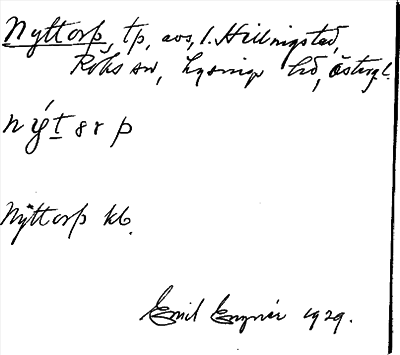 Nyttorp, tp, avs, l. Hillingstad,
Röks sn, Lysings hd, Östergl.
nýt s r p
Nyttorp kb.
Emil Engnér 1929.